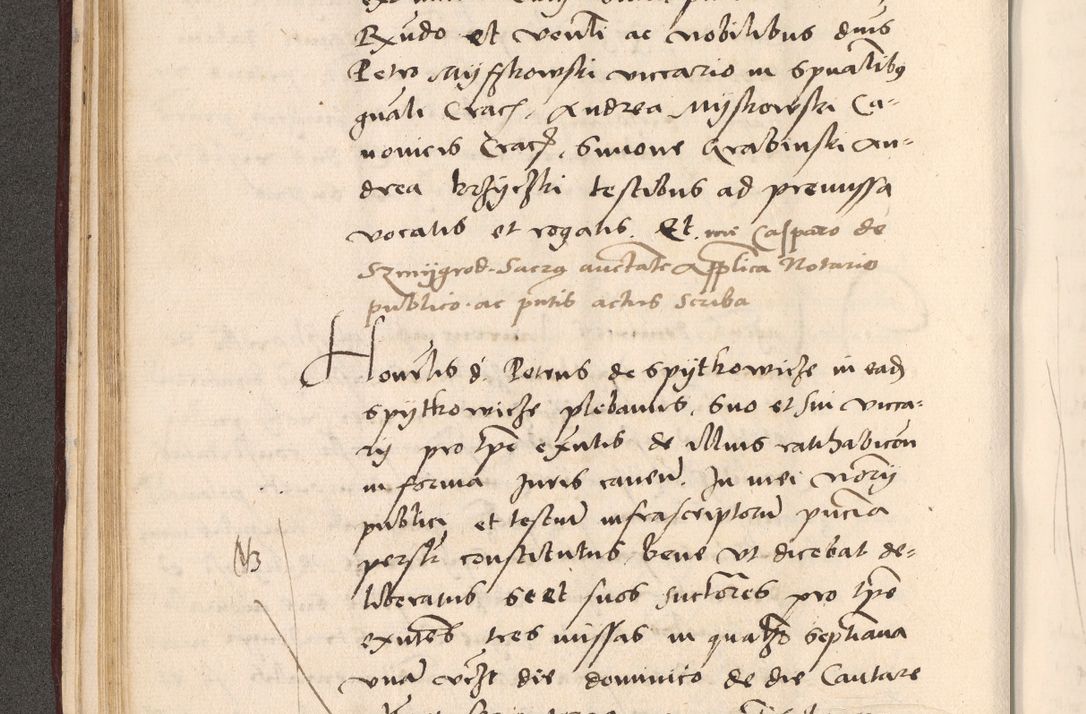 Rxndo et venli ac nobilibus dnis
Petro Myszkowski viccario in spualibus
gnali Crac, Andrea Myskowski Ca-
nonicis Crac, Simone Grabinski An-
drea krzyczki testibus ad premissa
vocatis et rogatis. Et mei Casparo de
Szmygrod Sacra auctate Applica Notario
publico ac pntis actus scriba
Honorlis d. Petrus de Spytkowicze in ead
Spytkowicze plebanus, suo et sui vicca-
rij pro tpe exntis de illius ratihabicon
in forma Juris caven. In mei Norij
publici et testiu infrascriptoru pncia
personlr constitutus bene ut dicebat de-
liberatus se et suos suctores pro tpe
NB
exntes tres missas in qualzt septiana
unam vczt die dominico de die Cantare